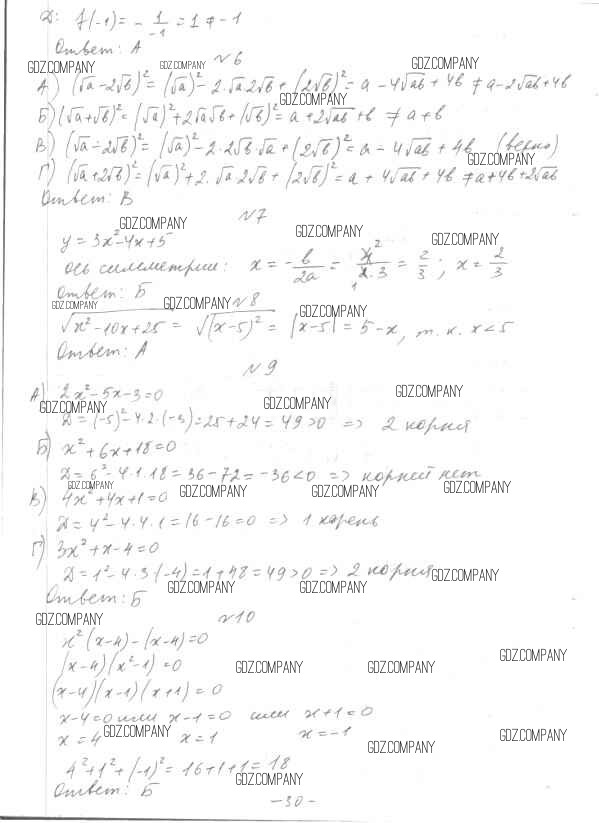 Д: f(-1) = - 1/-1 = 1 ≠ -1
Ответ: А
№6
GDZ.COMPANY GDZ.COMPANY GDZ.COMPANY
А) (√a - 2√b)² = (√a)² - 2·√a·2√b + (2√b)² = a - 4√ab + 4b ≠ a - 2√ab + 4b
GDZ.COMPANY
Б) (√a + √b)² = (√a)² + 2√a√b + (√b)² = a + 2√ab + b ≠ a + b
В) (√a - 2√b)² = (√a)² - 2·2√b·√a + (2√b)² = a - 4√ab + 4b (верно)
GDZ.COMPANY
Г) (√a + 2√b)² = (√a)² + 2·√a·2√b + (2√b)² = a + 4√ab + 4b ≠ a + 4b + 2√ab
Ответ: В
№7
GDZ.COMPANY GDZ.COMPANY GDZ.COMPANY
y = 3x² - 4x + 5
ось симметрии: x = - b/2a = 4/2·3 = 2/3; x = 2/3
Ответ: Б
№8
GDZ.COMPANY GDZ.COMPANY GDZ.COMPANY
√x² - 10x + 25 = √(x-5)² = |x-5| = 5-x, т.к. x < 5
Ответ: А
№9
А) 2x² - 5x - 3 = 0
GDZ.COMPANY GDZ.COMPANY GDZ.COMPANY
Д = (-5)² - 4·2·(-3) = 25 + 24 = 49 > 0 => 2 корня
Б) x² + 6x + 18 = 0
Д = 6² - 4·1·18 = 36 - 72 = -36 < 0 => корней нет
GDZ.COMPANY GDZ.COMPANY GDZ.COMPANY GDZ.COMPANY
В) 4x² + 4x + 1 = 0
Д = 4² - 4·4·1 = 16 - 16 = 0 => 1 корень
Г) 3x² + x - 4 = 0
Д = 1² - 4·3·(-4) = 1 + 48 = 49 > 0 => 2 корня
GDZ.COMPANY GDZ.COMPANY GDZ.COMPANY
Ответ: Б
№10
GDZ.COMPANY
x²(x-4) - (x-4) = 0
(x-4)(x²-1) = 0
GDZ.COMPANY GDZ.COMPANY GDZ.COMPANY
(x-4)(x-1)(x+1) = 0
x-4=0 или x-1=0 или x+1=0
x = 4 x = 1 x = -1
GDZ.COMPANY GDZ.COMPANY GDZ.COMPANY
4² + 1² + (-1)² = 16 + 1 + 1 = 18
GDZ.COMPANY
Ответ: Б
-30-